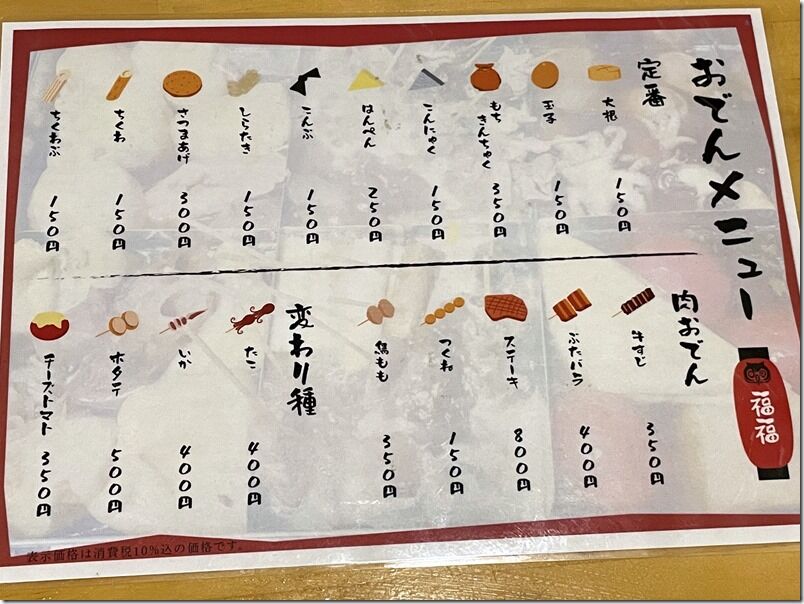 おでんメニュー
定番
大根 150円
玉子 150円
もちきんちゃく 350円
こんにゃく 150円
はんぺん 250円
こんぶ 150円
しらたき 150円
さつまあげ 300円
ちくわ 150円
ちくわぶ 150円
肉おでん
牛すじ 350円
ぶたバラ 400円
ステーキ 800円
つくね 150円
鶏もも 350円
変わり種
たこ 400円
いか 400円
ホタテ 500円
チーズトマト 350円
福福
表示価格は消費税10%込の価格です。